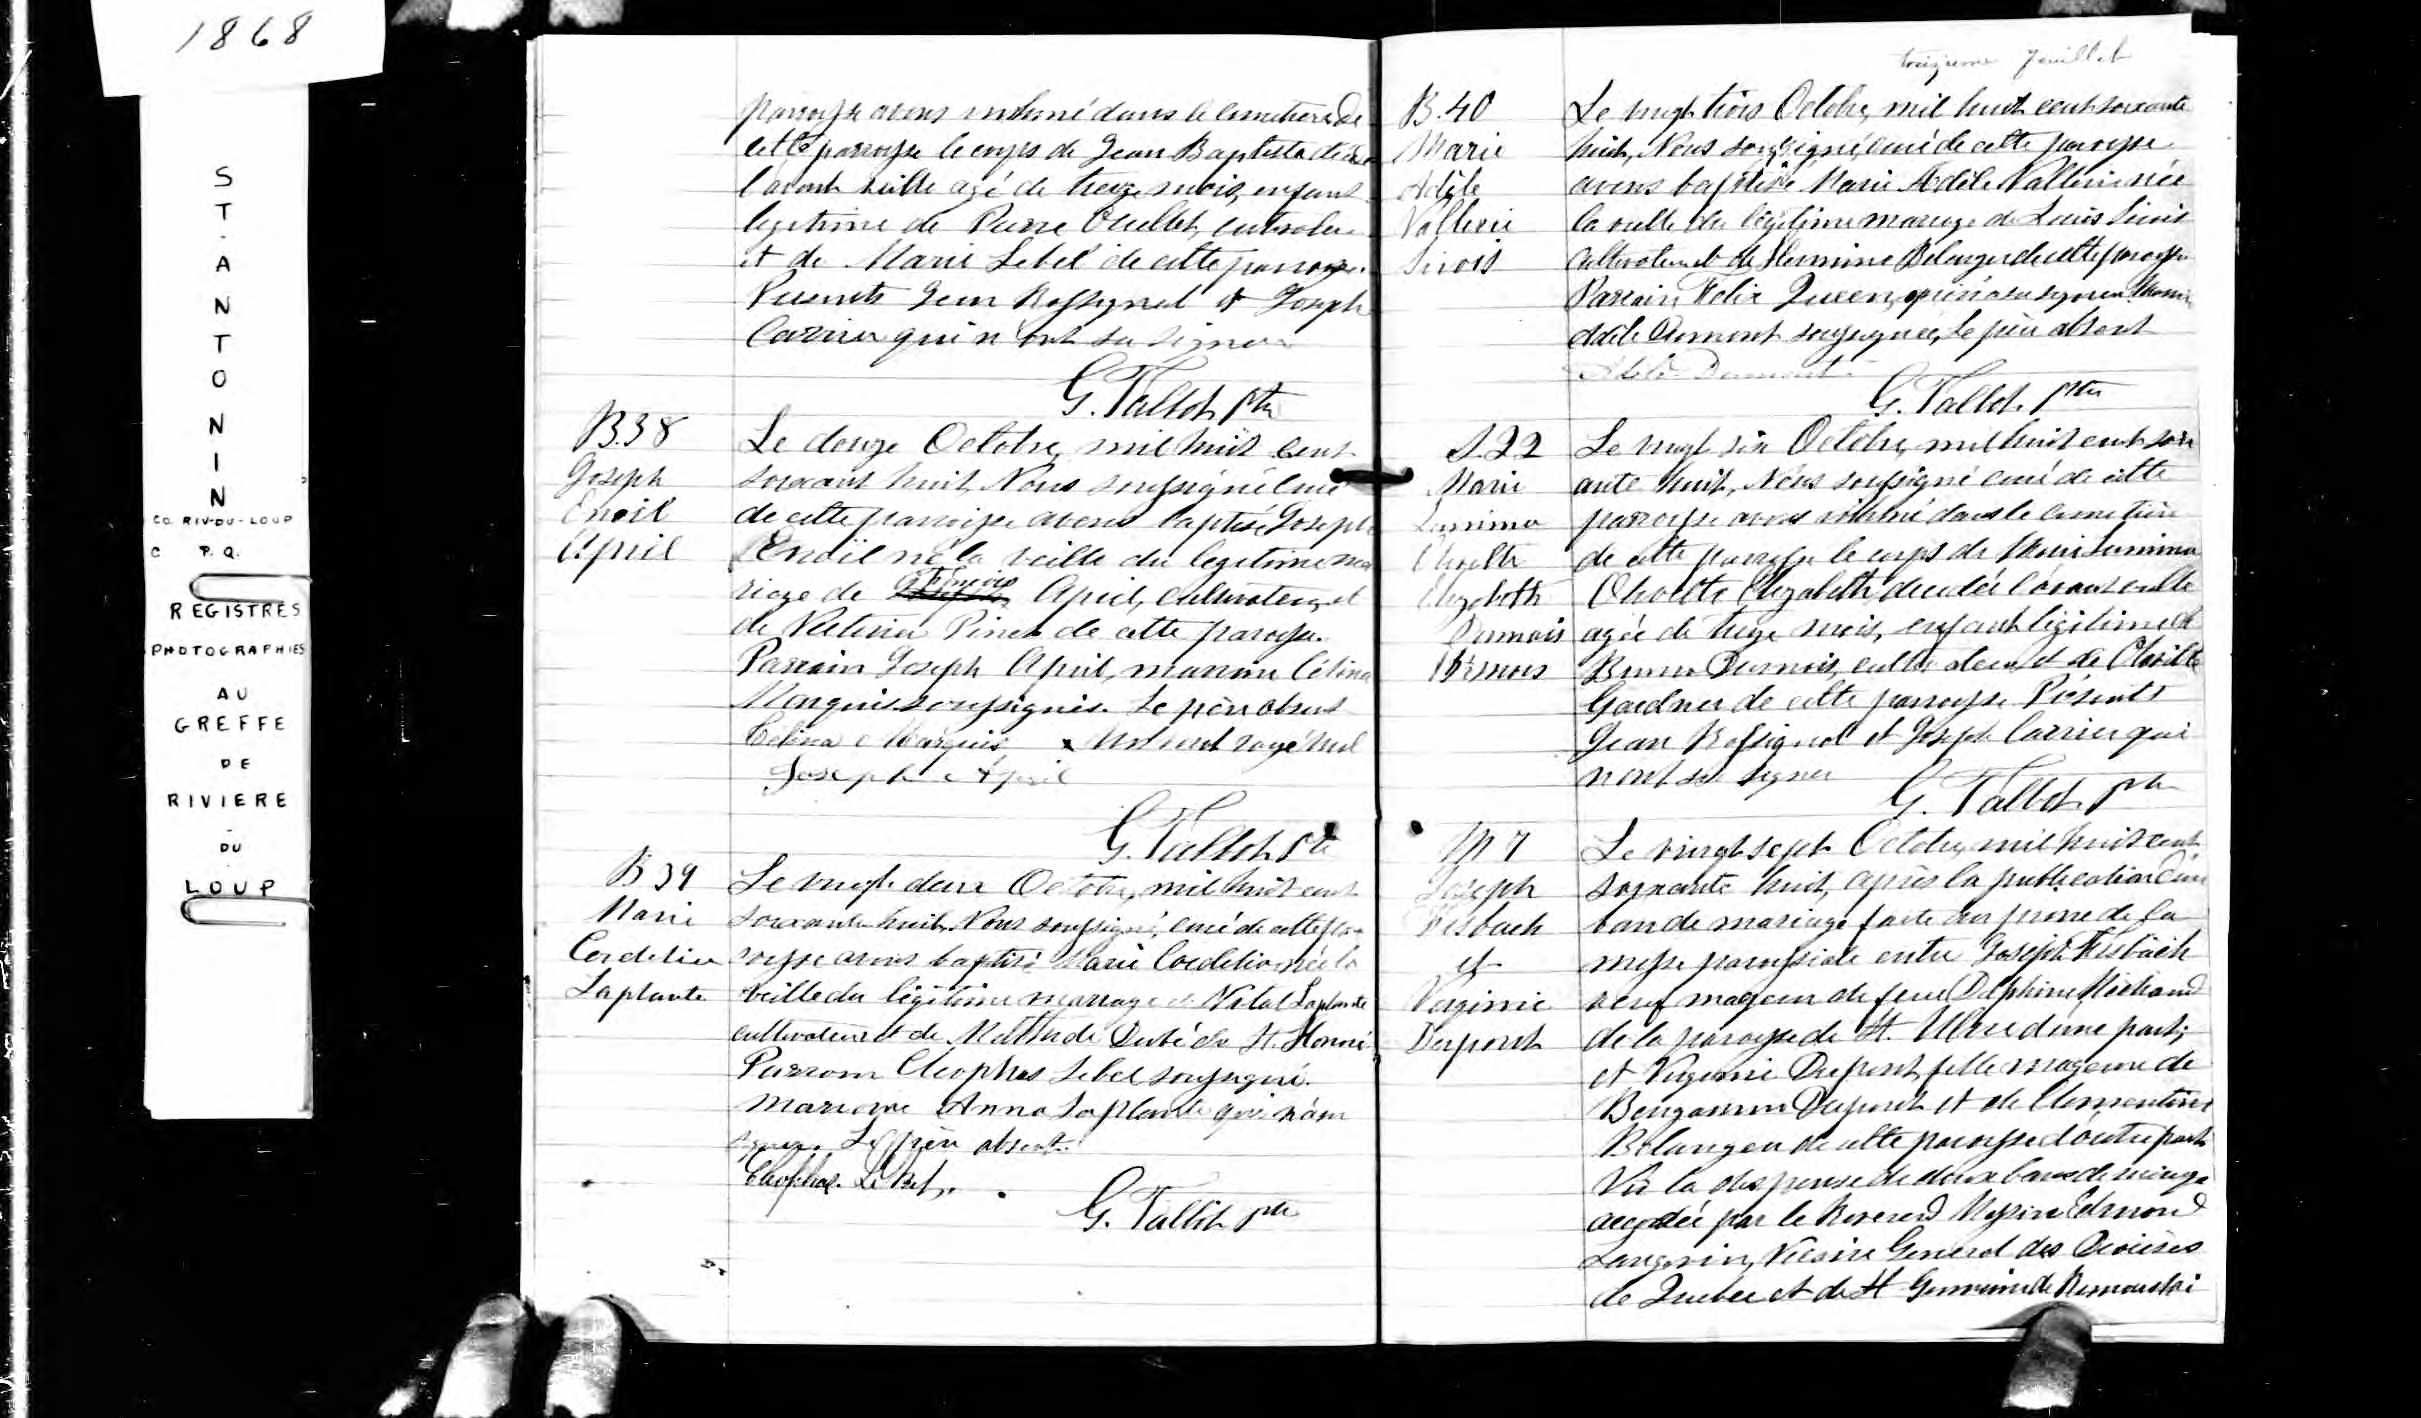 1868
ST-ANTONIN
CO. RIV-DU-LOUP
P.Q.
REGISTRES
PHOTOGRAPHIES
AU
GREFFE
DE
RIVIERE
-
DU
-
LOUP
paroisse avons inhumé dans le cimetière de
cette paroisse le corps de Jean Baptiste décédé
l'avant veille agé de treize mois, enfant
legitime de Pierre Ouellet, cultivateur
et de Marie Lebel de cette paroisse.
Présents Jean Rossignol et Joseph
Carrier qui n'ont su signer
G. Talbot ptre
B.38
Joseph
April
Le douze Octobre, mil huit cent
soixante huit, Nous soussigné curé
de cette paroisse avons baptisé Joseph
né la veille du legitime ma
riage de April, cultivateur et
de Pinet de cette paroisse.
Parrain Joseph April, marraine Célina
Marquis soussignés. Le père absent
Célina Marquis x Un mot rayé nul
Joseph April
G. Talbot ptre
B 39
Marie
Cordelia
Laplante
Le vingt deux Octobre, mil huit cent
soixante huit, Nous soussigné, curé de cette pa
roisse avons baptisé Marie Cordelia née la
veille du légitime mariage de Vital Laplante
cultivateur et de Mathilde Dubé de St. Honoré
Parrain Cleophas Lebel soussigné.
Marraine Anna Laplante qui n'a su
signer. Le père absent.
Cleophas LeBel.
G. Talbot ptre
treizieme feuillet
B.40
Marie
Adèle
Vallerie
Sirois
Le vingt trois Octobre, mil huit cent soixante
huit, Nous soussigné, curé de cette paroisse
avons baptisé Marie Adèle Vallerie née
la veille du légitime mariage de Louis Sirois
cultivateur et de Hermine Belanger de cette paroisse
Parrain Felix Queen, qui n'a su signer Marraine
Adèle Dumont soussignée, le père absent
Adèle Dumont
G. Talbot ptre
S 22
Marie
Elizabeth
Dumais
13 mois
Le vingt six Octobre, mil huit cent soix
ante huit, Nous soussigné curé de cette
paroisse avons inhumé dans le cimetière
de cette paroisse le corps de Marie
Elizabeth décédée l'avant veille
agée de treize mois, enfant légitime de
Bruno Dumais, cultivateur et de
Gardner de cette paroisse Présents
Jean Rossignol et Joseph Carrier qui
n'ont su signer
G. Talbot ptre
M 7
Joseph
et
Virginie
Dupont
Le vingt sept Octobre, mil huit cent
soixante huit, après la publication d'un
ban de mariage faite au prone de la
messe paroissiale entre Joseph
veuf majeur de feue Delphine Michaud
de la paroisse de St. d'une part,
et Virginie Dupont, fille majeure de
Benjamin Dupont et de Clementine
Belanger de cette paroisse d'autre part
Vu la dispense de deux bans de mariage
accordée par le Reverend Messire Edmond
Langevin, Vicaire General des Diocèses
de Quebec et de St Germain de Rimouski